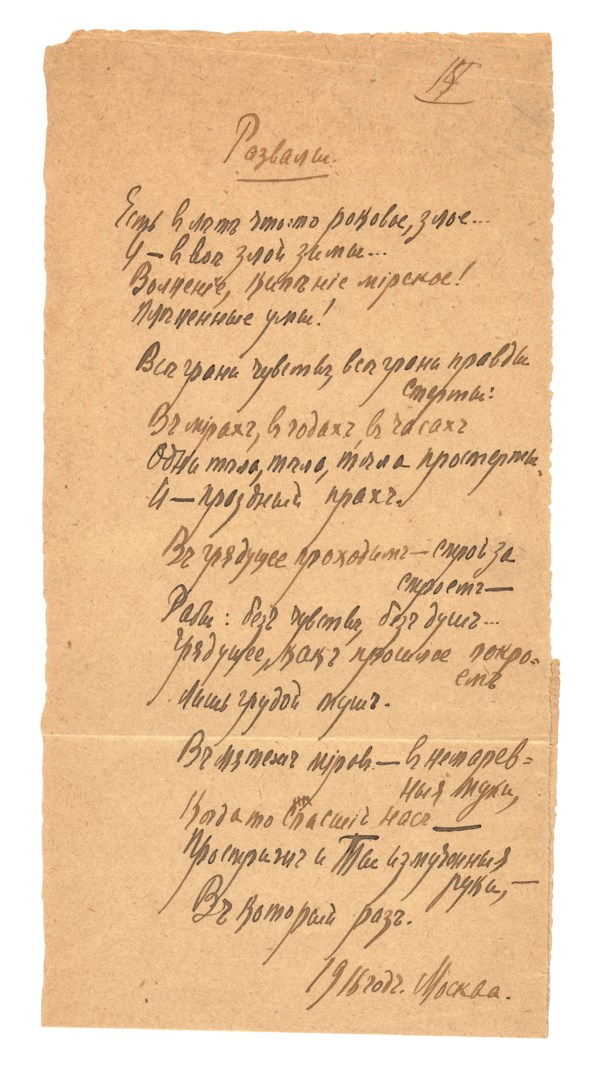 IV
Развалы.
Есть в лѣтѣ что-то роковое, злое...
И — в воѣ злой зимы...
Волненіе, кипѣніе мірское!
Плѣненные умы!
Всѣ грани чувствъ, всѣ грани правды
стерты:
Въ мірахъ, в годахъ, в часахъ
Одни тѣла, тѣла, тѣла простерты,
И — праздный прахъ.
Въ грядущее проходимъ — строй за
строемъ —
Рабы: безъ чувствъ, безъ душъ...
Грядущее, какъ прошлое покро-
емъ
Лишь грудой тушъ.
Въ мятежѣ міров — в немарев-
ныя муки,
Когда-то спасшій насъ —
Простри-жъ и Ты измученныя
руки, —
Въ который разъ.
1916 годъ. Москва.